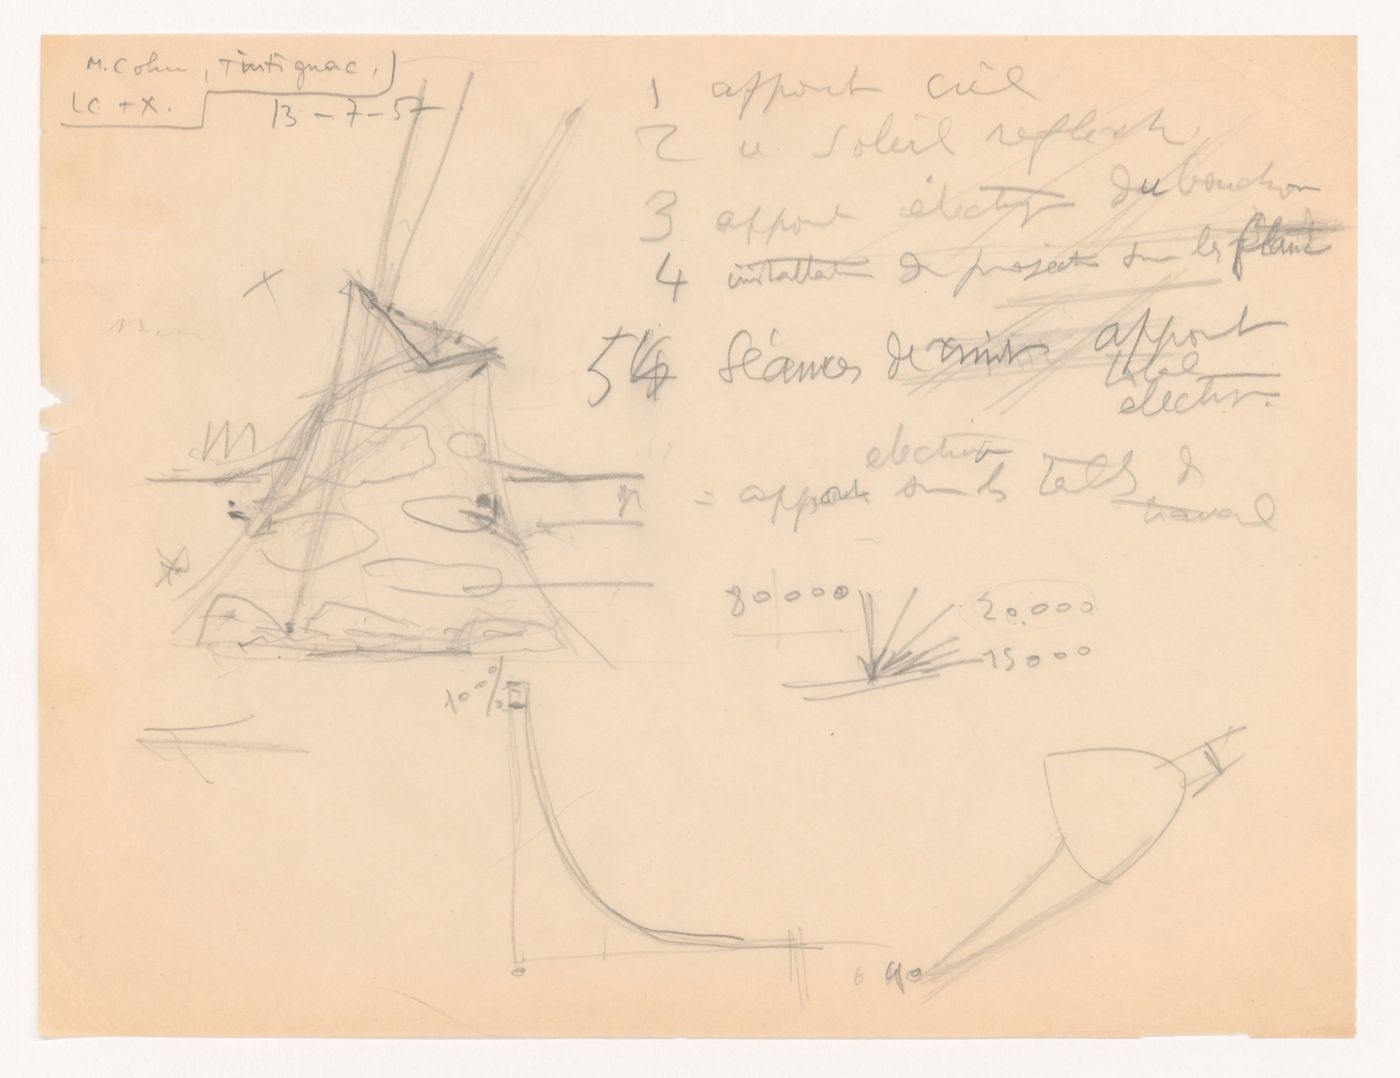 M. Cohu, Tintignac,
LC + X.
13-7-57
1 apport ciel
2 " soleil réflexh
3 apport électriq du bouchon
4 installation de projecteurs sur les
54 Séances de nuit apport
total
électriq.
electriq
= apport sur les tables de
travail
X
M
n
80000
20.000
15000
100%